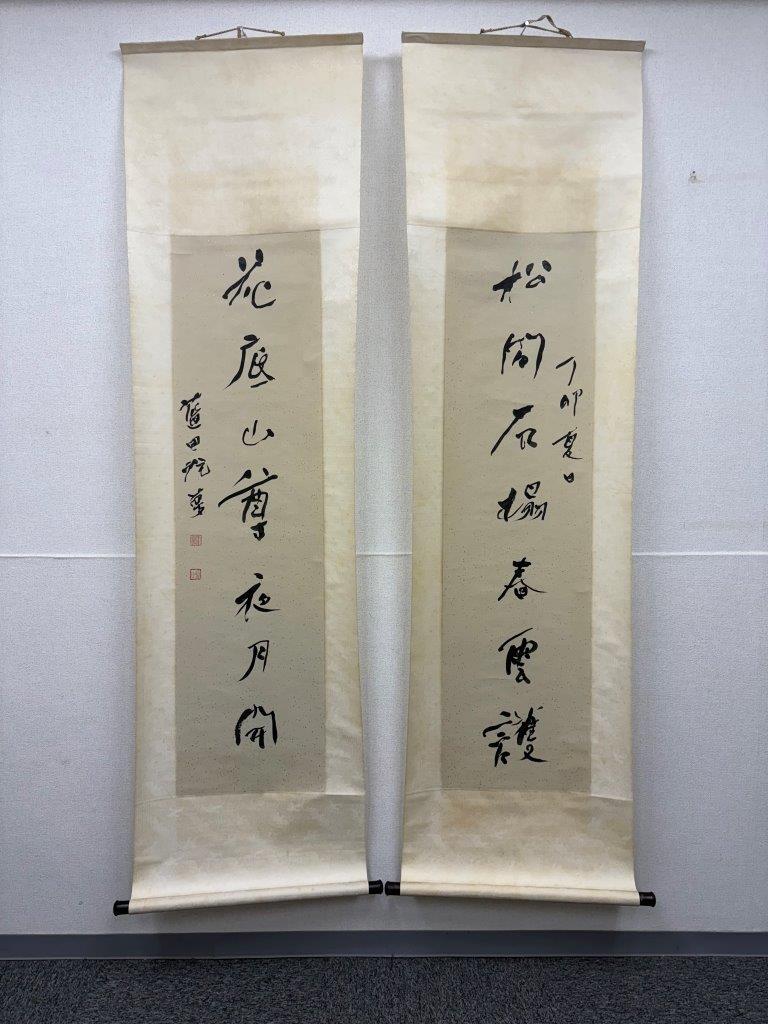 丁卯夏日
松間石榻春雲護
花底山尊夜月開